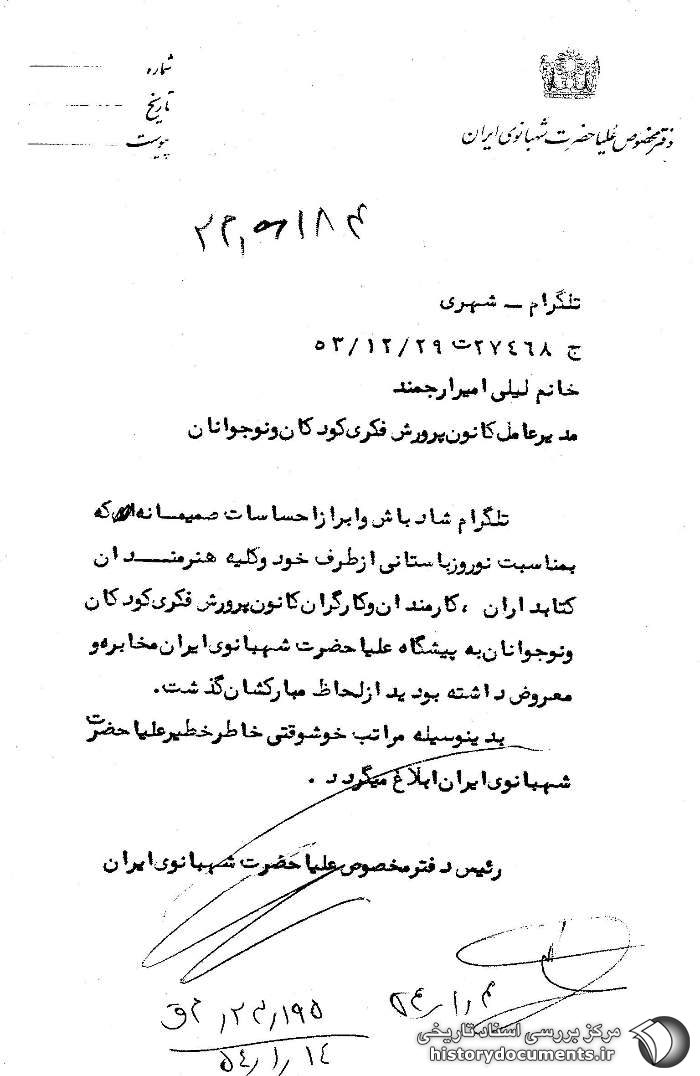 دفتر مخصوص علیاحضرت شهبانوی ایران
شماره
تاریخ
پیوست
تلگرام ــ شهری
ج ۲۷٤٦۸ت ۵۳/۱۲/۲۹
خانم لیلی امیرارجمند
مدیرعامل کانون پرورش فکری کودکان و نوجوانان
تلگرام شادباش وابراز احساسات صمیمانه که
بمناسبت نوروز باستانی از طرف خود و کلیه هنرمندان
کتابداران ، کارمندان و کارگران کانون پرورش فکری کودکان
و نوجوانان به پیشگاه علیاحضرت شهبانوی ایران مخابره و
معروض داشته بودید از لحاظ مبارکشان گذشت.
بدینوسیله مراتب خوشوقتی خاطر خطیر علیاحضرت
شهبانوی ایران ابلاغ میگردد .
رئیس دفتر مخصوص علیاحضرت شهبانوی ایران
۵۴/۱/۱۴
مرکز بررسی اسناد تاریخی
historydocuments.ir